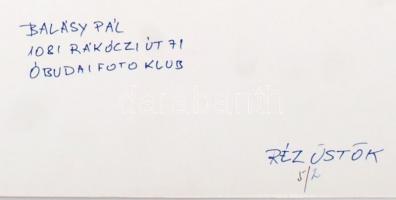 BALÁSY PÁL
1081 RÁKÓCZI ÚT 71
ÓBUDAI FOTO KLUB
darabanth
RÉZ ÜSTÖK
5/2